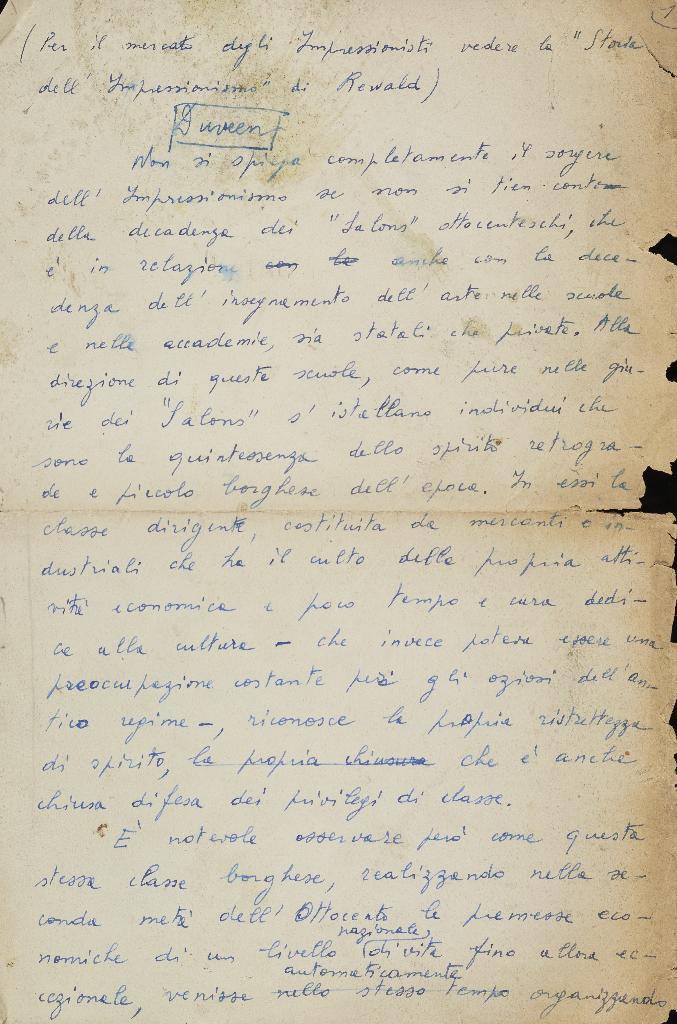 1
(Per il mercato degli Impressionisti vedere la "Storia
dell'Impressionismo" di Rewald)
Duveen
Non si spiega completamente il sorgere
dell'Impressionismo se non si tien conto
della decadenza dei "Salons" ottocenteschi, che
è in relazione con la anche con la deca-
denza dell'insegnamento dell'arte nelle scuole
e nelle accademie, sia statali che private. Alla
direzione di queste scuole, come pure nelle giu-
rie dei "Salons" s'istallano individui che
sono la quintessenza dello spirito retrogra-
do e piccolo borghese dell'epoca. In essi la
classe dirigente, costituita da mercanti e in-
dustriali che ha il culto della propria atti-
vità economica e poco tempo e cura dedi-
ca alla cultura – che invece poteva essere una
preoccupazione costante per gli oziosi dell'an-
tico regime –, riconosce la propria ristrettezza
di spirito, la propria chiusura che è anche
chiusa difesa dei privilegi di classe.
È notevole osservare però come questa
stessa classe borghese, realizzando nella se-
conda metà dell'Ottocento le premesse eco-
nomiche di un livello nazionale, di vita fino allora ec-
cezionale, venisse nello stesso tempo automaticamente organizzando